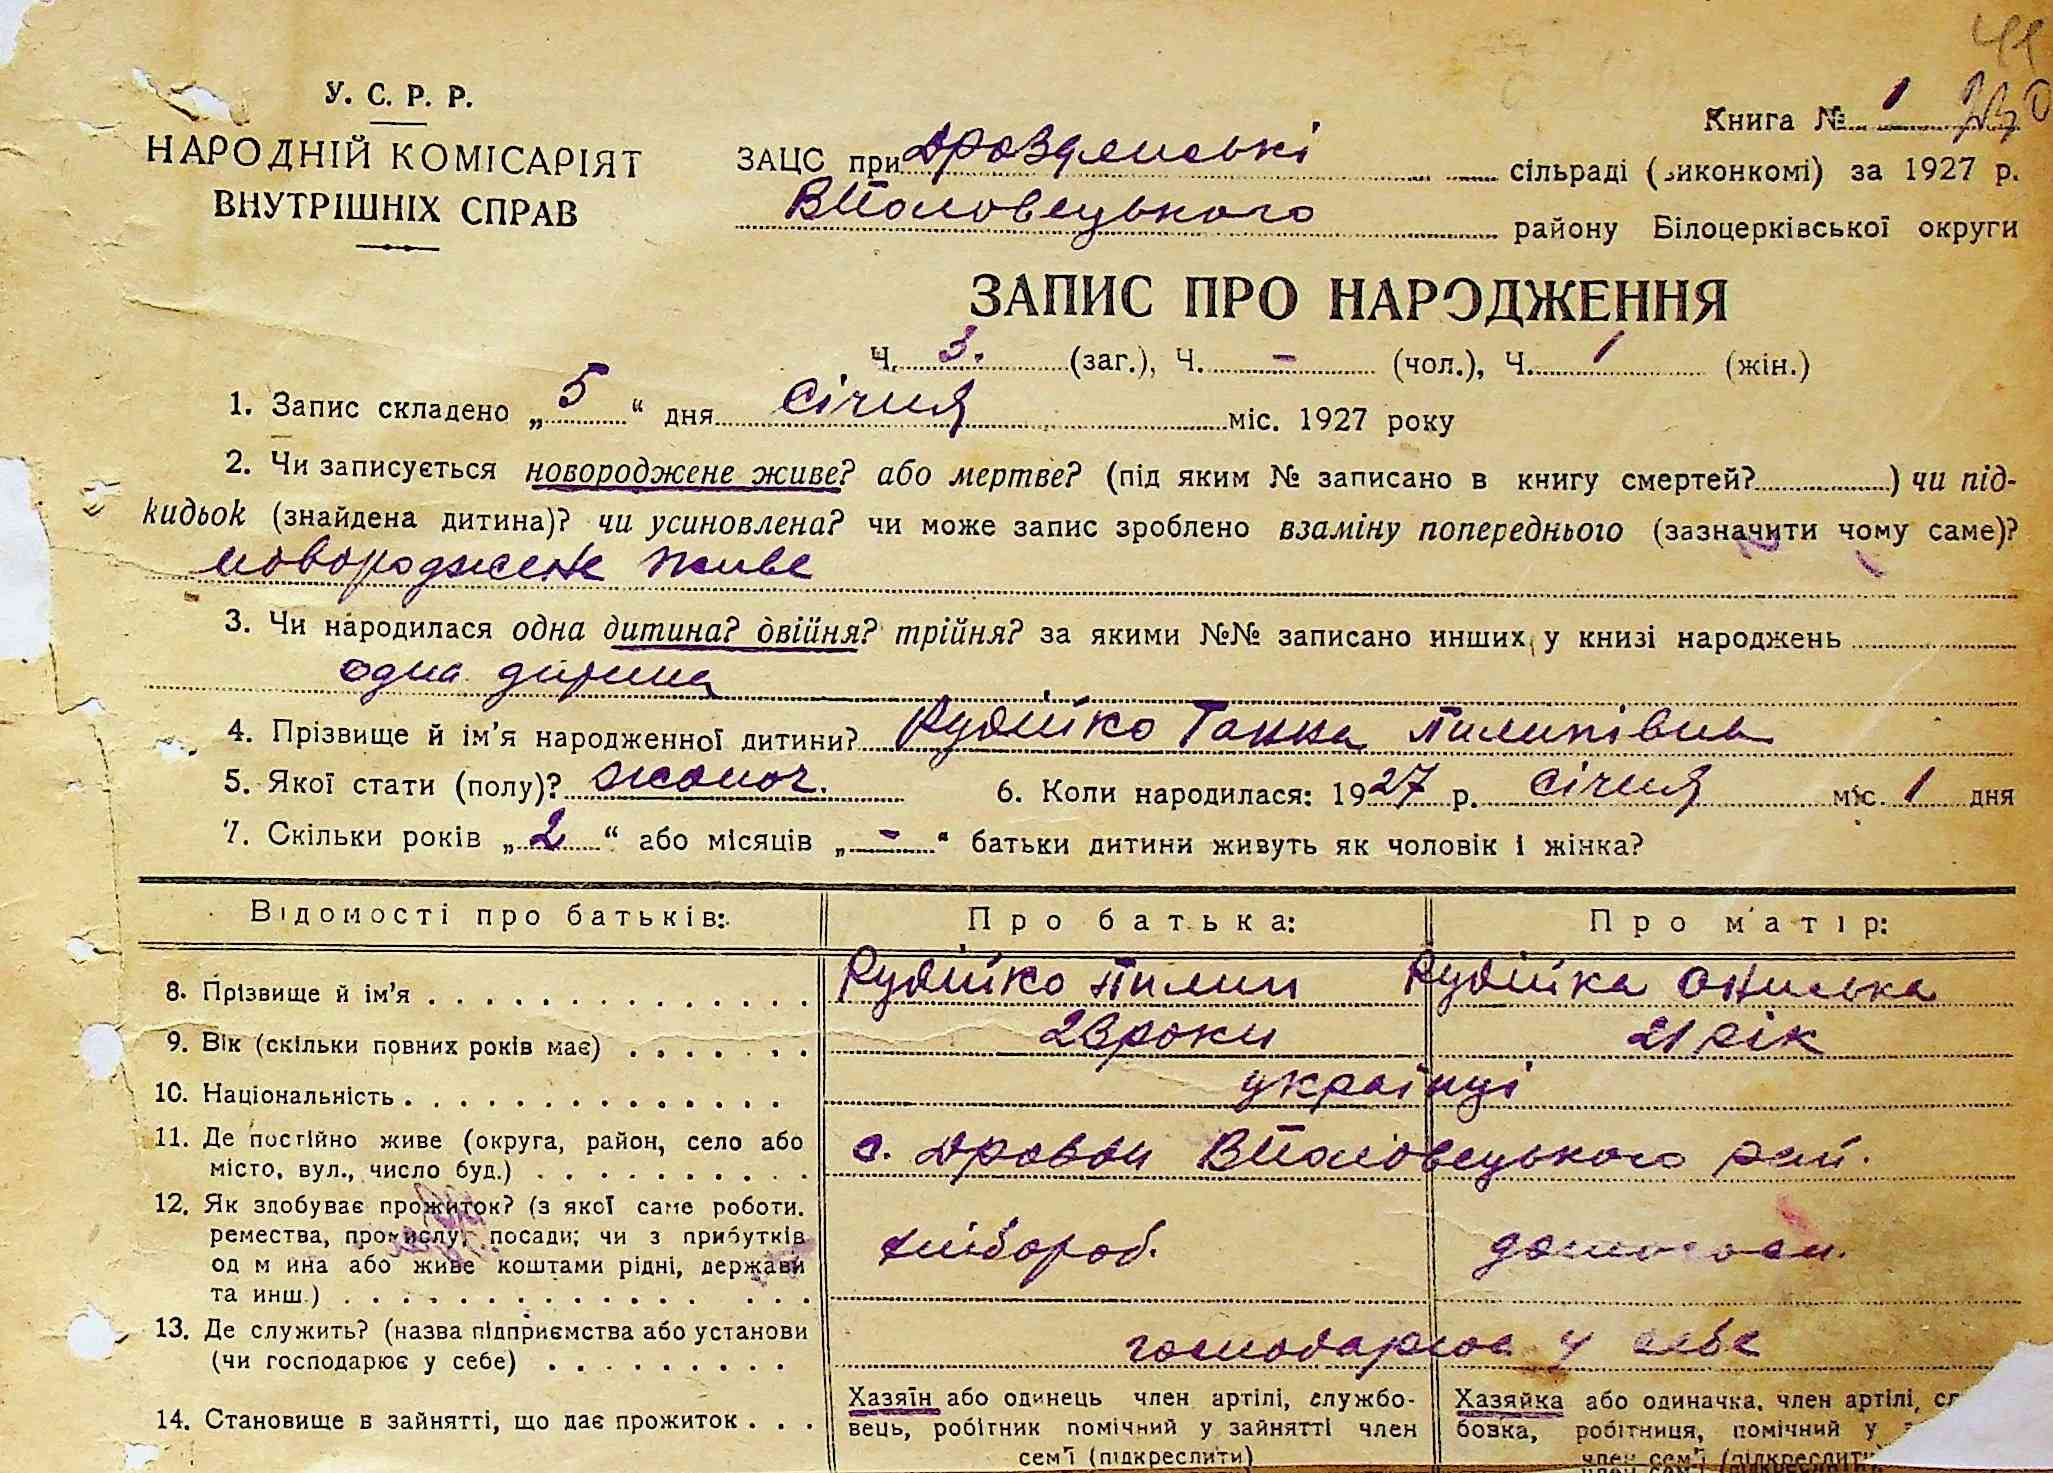 У. С. Р. Р.
НАРОДНІЙ КОМІСАРІЯТ
ВНУТРІШНІХ СПРАВ
Книга № 1
ЗАЦС при Дроздянські сільраді (виконкомі) за 1927 р.
ВПоловецького району Білоцерківської округи
ЗАПИС ПРО НАРОДЖЕННЯ
Ч. 3. (заг.), Ч. - (чол.), Ч. 1 (жін.)
1. Запис складено „5“ дня січня міс. 1927 року
2. Чи записується новороджене живе? або мертве? (під яким № записано в книгу смертей?) чи під-
кидьок (знайдена дитина)? чи усиновлена? чи може запис зроблено взаміну попереднього (зазначити чому саме)?
новороджене живе
3. Чи народилася одна дитина? двійня? трійня? за якими №№ записано инших у книзі народжень
одна дитина
4. Прізвище й ім'я народженної дитини? Рудійко Ганна Пилипівна
5. Якої стати (полу)? жіноч. 6. Коли народилася: 1927 р. січня міс. 1 дня
7. Скільки років „2“ або місяців „-“ батьки дитини живуть як чоловік і жінка?
Відомості про батьків: Про батька: Про матір:
8. Прізвище й ім'я Рудійко Пилип Рудійка Онилька
9. Вік (скільки повних років має) 23 роки 21 рік
10. Національність українці
11. Де постійно живе (округа, район, село або
місто, вул., число буд.) с. Дрозди ВПоловецького рай.
12. Як здобуває прожиток? (з якої саме роботи.
ремества, промислу, посади; чи з прибутків
од м йна або живе коштами рідні, держави
та инш.) хлібороб. домогосп.
13. Де служить? (назва підприємства або установи
(чи господарює у себе) господарює у себе
14. Становище в зайнятті, що дає прожиток
Хазяїн або одинець член артілі, службо-
вець, робітник помічний у зайнятті член
сем'ї (підкреслити)
Хазяйка або одиначка, член артілі, сл
бовка, робітниця, помічний у з
член сем'ї (підкреслити